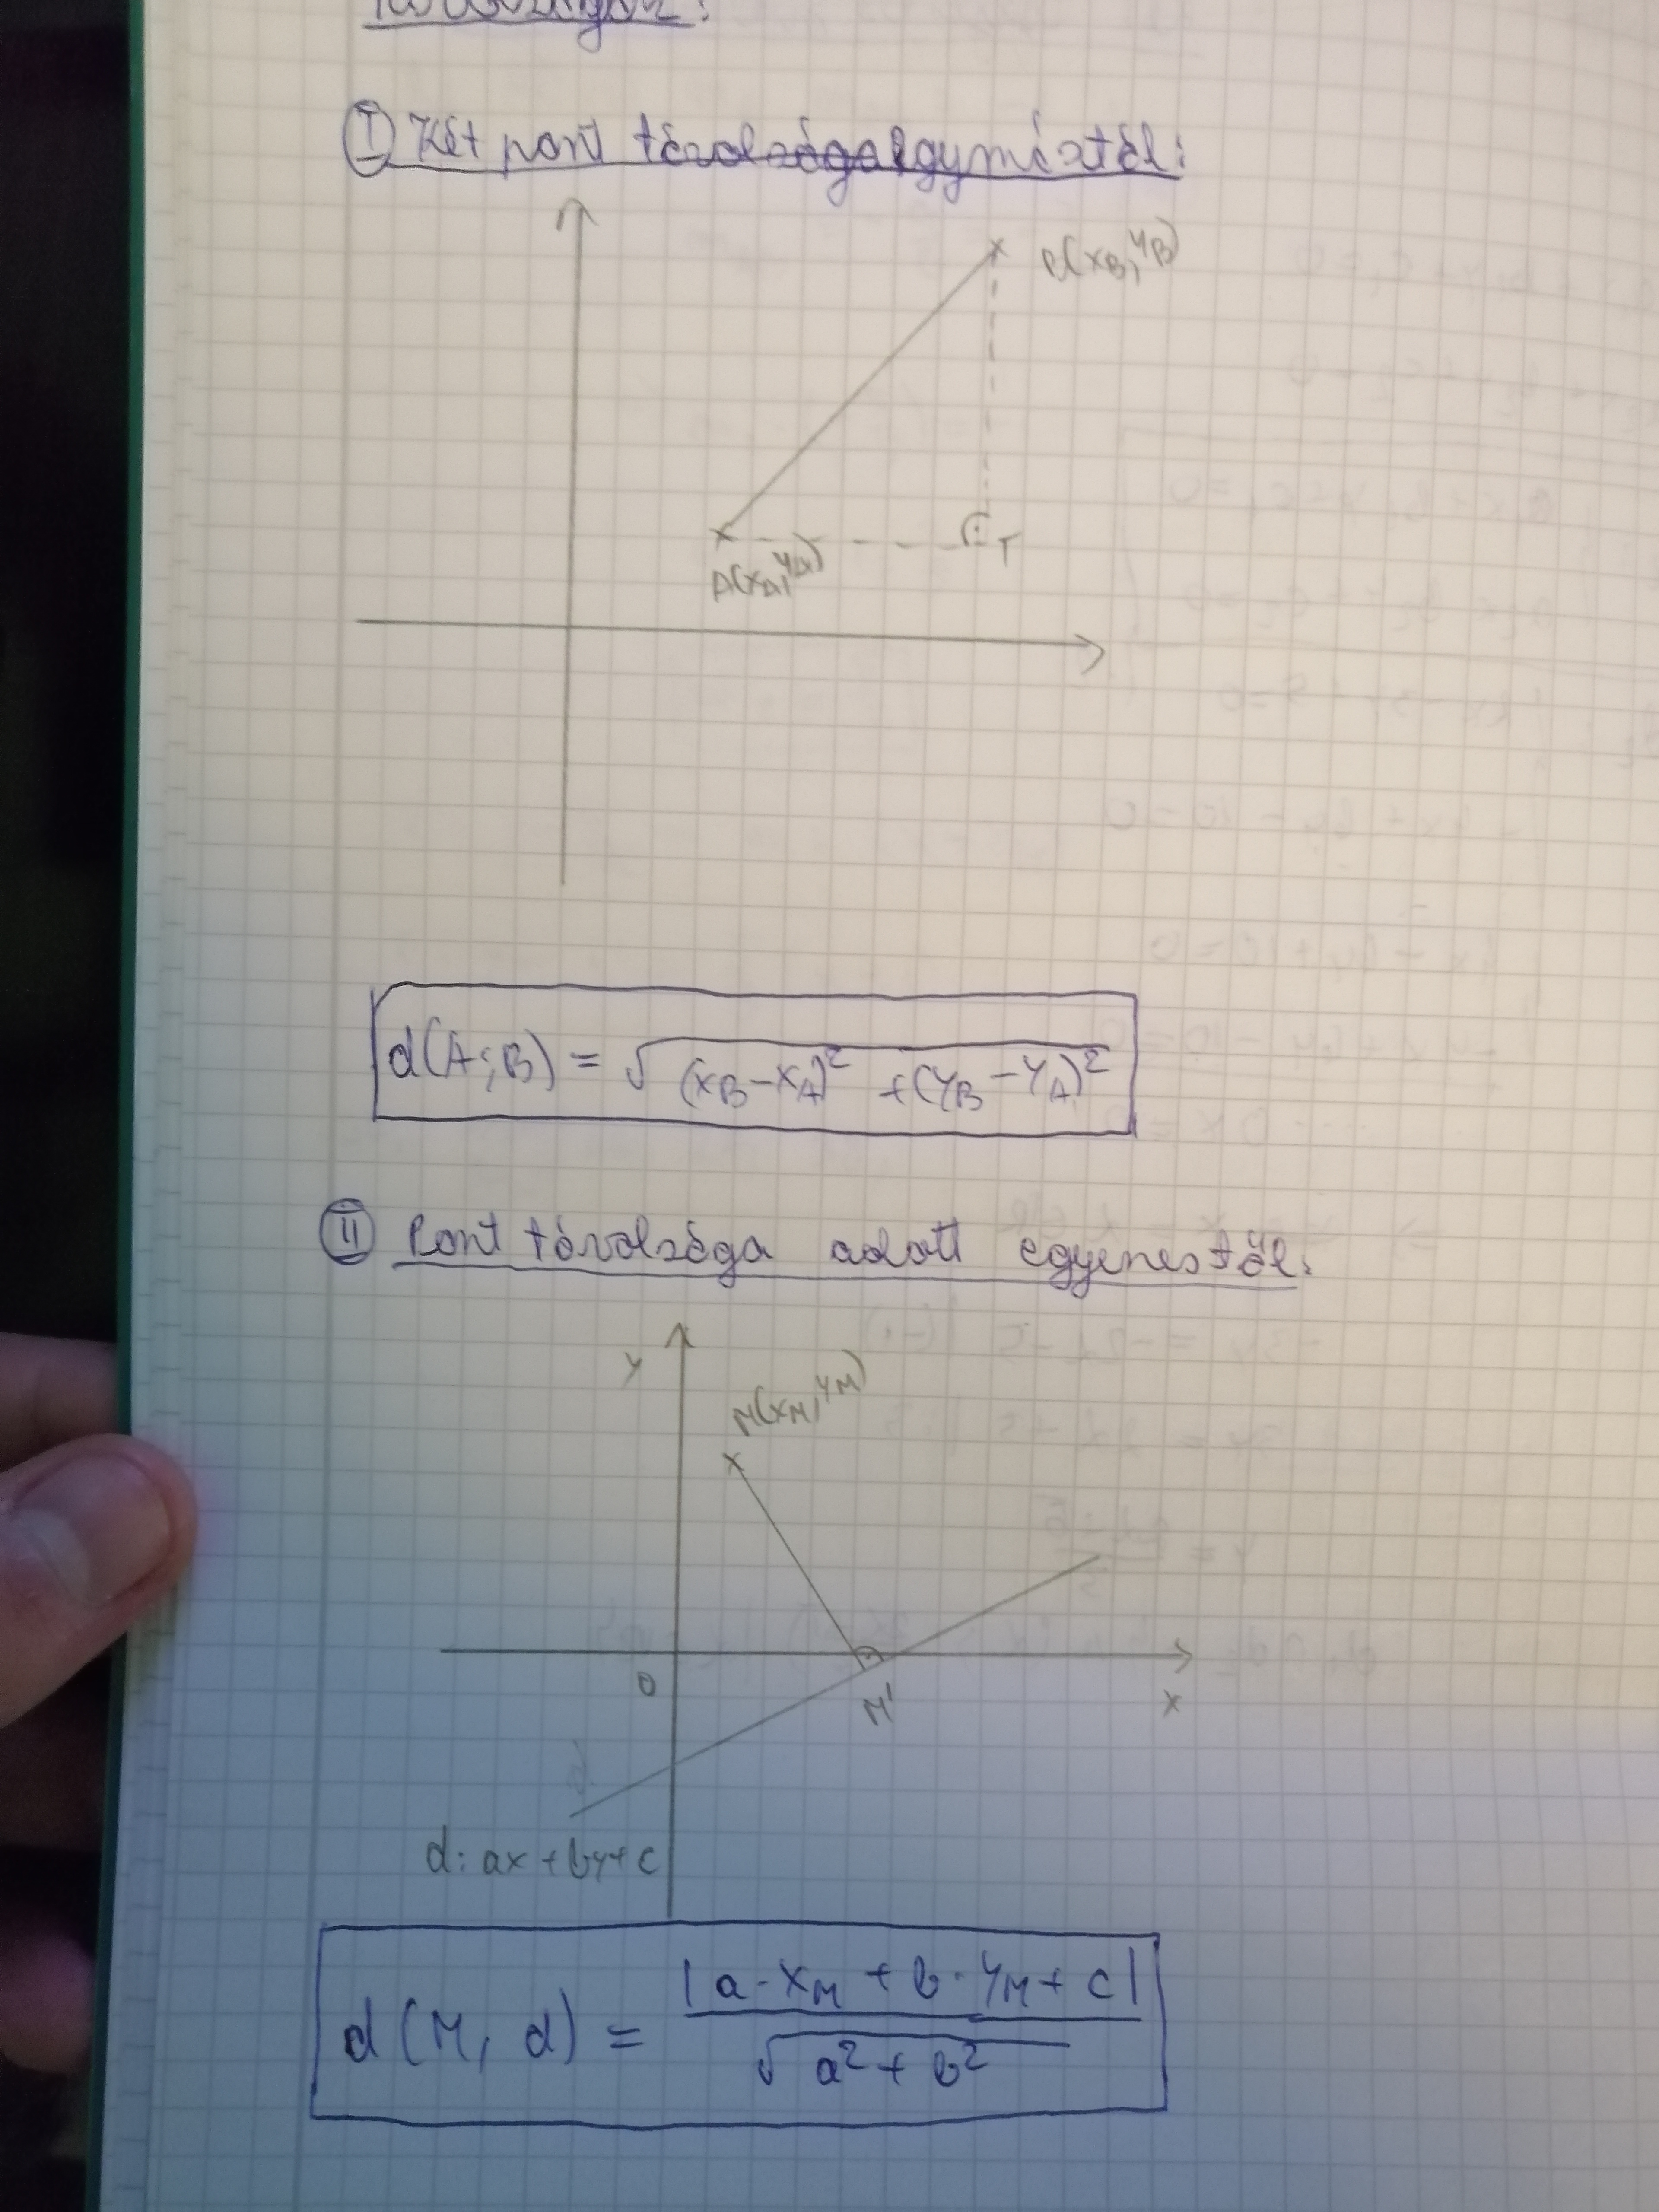 Ⓘ Két pont távolsága egymástól:
B(x_B, y_B)
T
A(x_A, y_A)
d(A;B) = √(x_B-x_A)² + (y_B-y_A)²
Ⓘⓘ Pont távolsága adott egyenestől:
y
M(x_M, y_M)
0
M'
x
d: ax+by+c
d(M, d) = |a·x_M + b·y_M + c| / √a²+b²